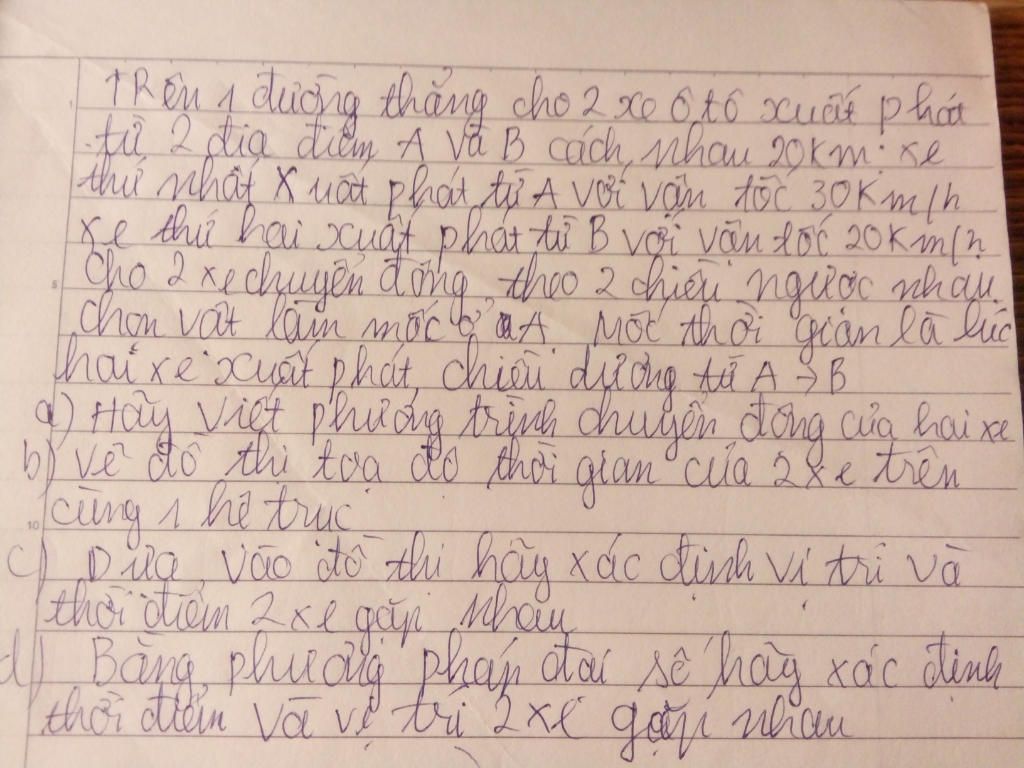 TRên 1 đường thẳng cho 2 xe ô tô xuất phát
từ 2 địa điểm A và B cách nhau 20Km. xe
thứ nhất Xuất phát từ A với vận tốc 30Km/h
xe thứ hai xuất phát từ B với vận tốc 20Km/h
Cho 2 xe chuyển động theo 2 chiều ngược nhau.
Chọn vật làm mốc ở A Mốc thời gian là lúc
hai xe xuất phát, chiều dương từ A → B
a) Hãy viết phương trình chuyển động của hai xe
b) Vẽ đồ thị tọa độ thời gian của 2 xe trên
cùng 1 hệ trục
c) Dựa vào đồ thị hãy xác định vị trí và
thời điểm 2 xe gặp nhau
d) Bằng phương pháp đại số hãy xác định
thời điểm và vị trí 2 xe gặp nhau